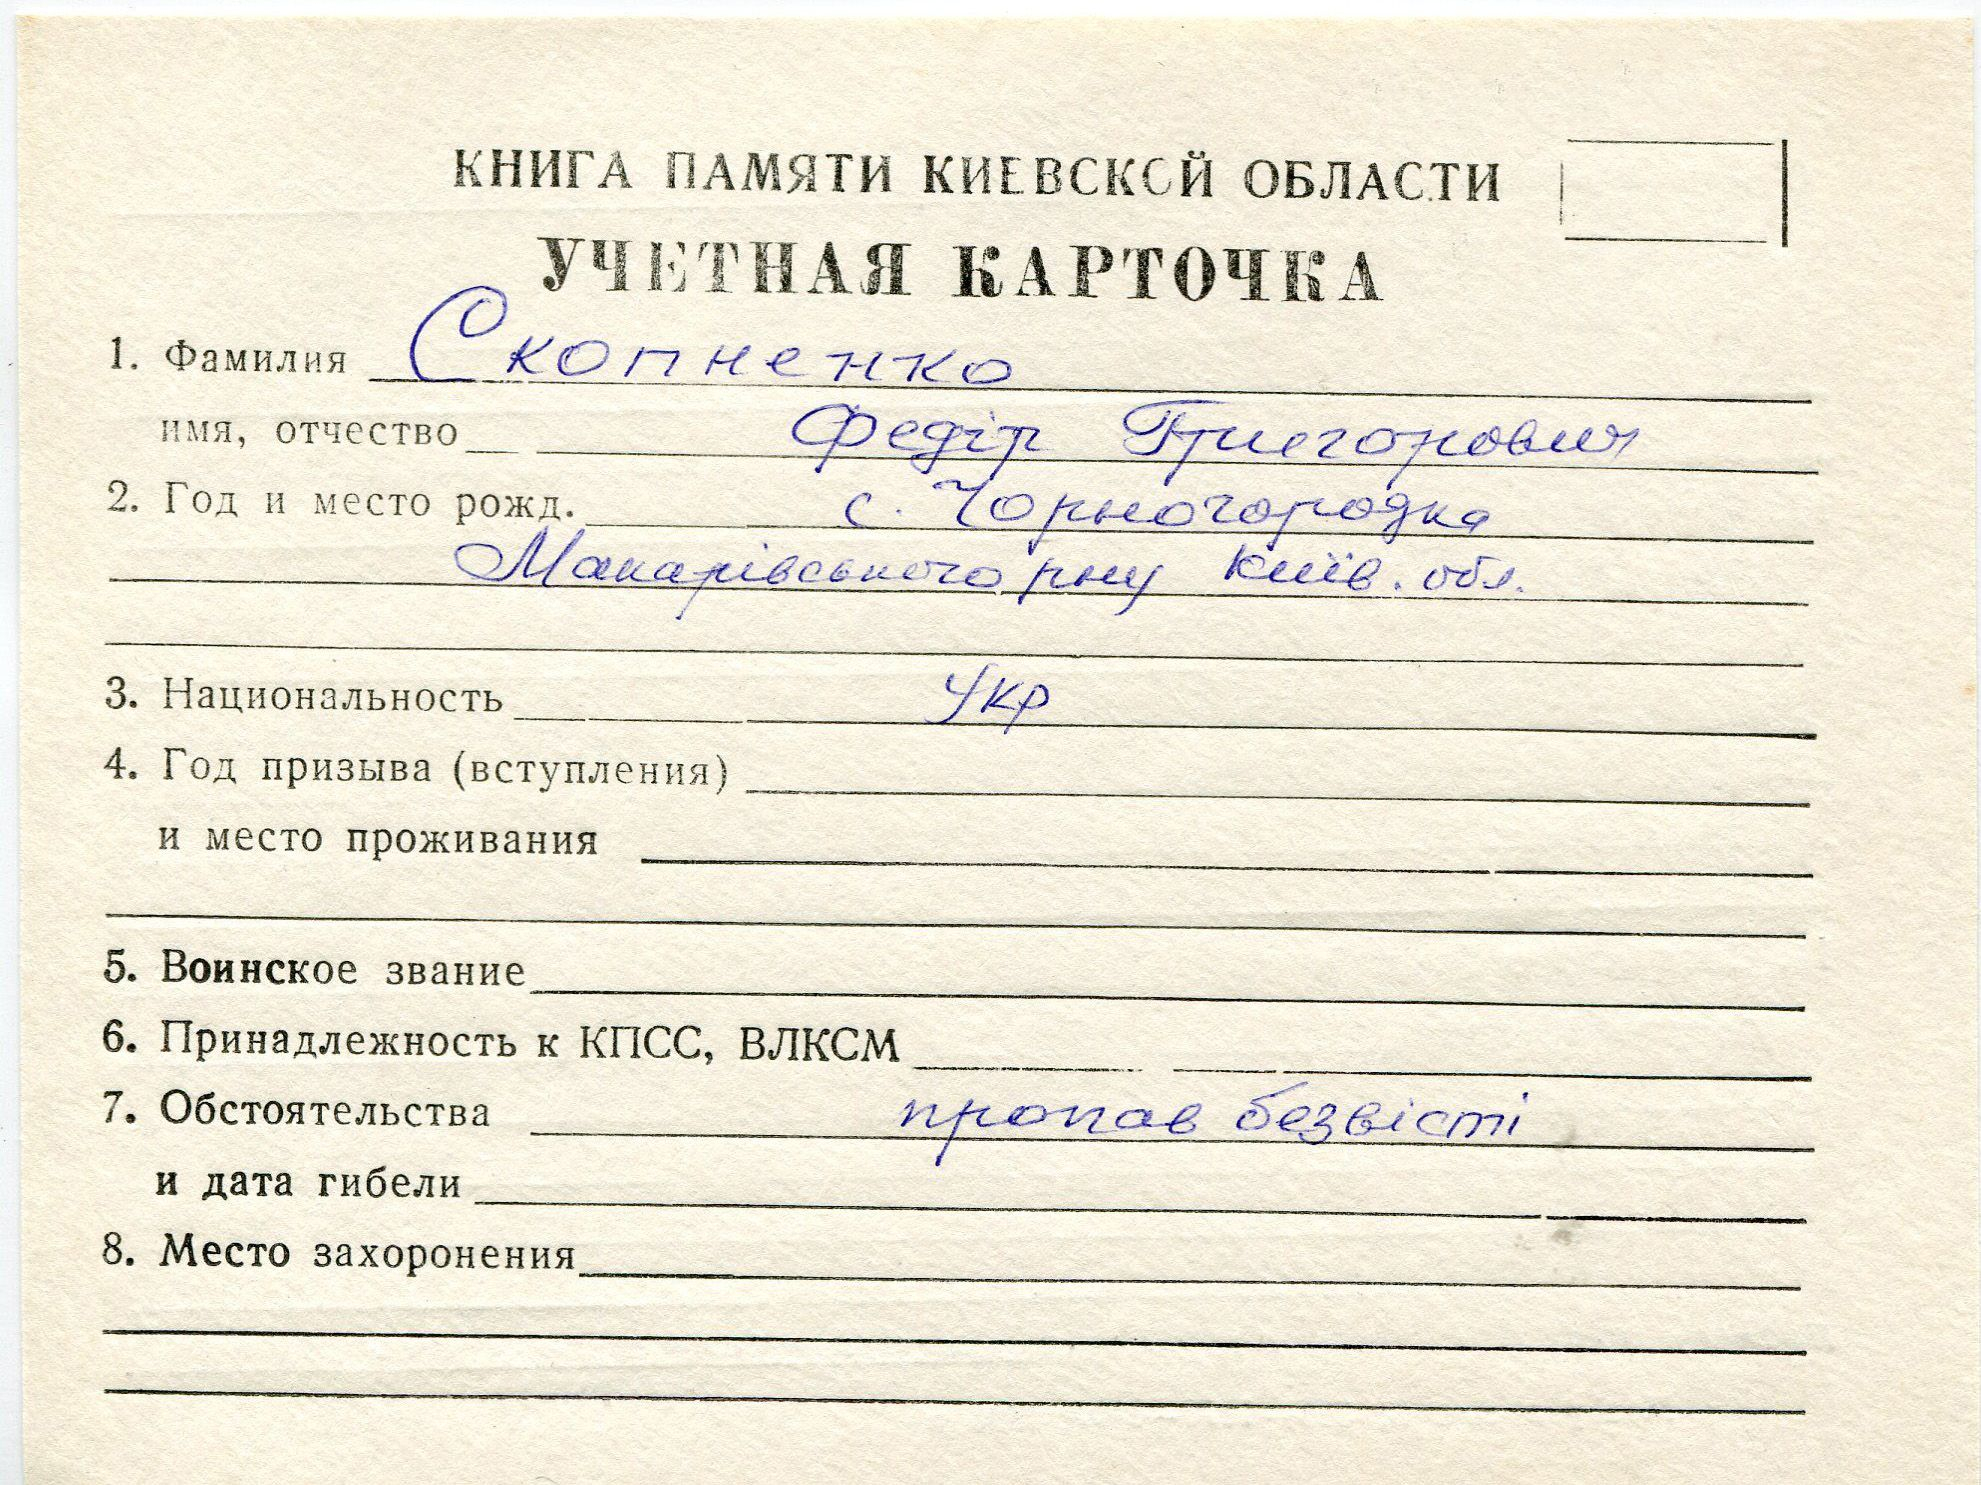 КНИГА ПАМЯТИ КИЕВСКОЙ ОБЛАСТИ
УЧЕТНАЯ КАРТОЧКА
1. Фамилия Скопненко
имя, отчество Федір Григорович
2. Год и место рожд. с. Чорногородка
Макарівського рну Київ. обл.
3. Национальность Укр
4. Год призыва (вступления)
и место проживания
5. Воинское звание
6. Принадлежность к КПСС, ВЛКСМ
7. Обстоятельства пропав безвісті
и дата гибели
8. Место захоронения